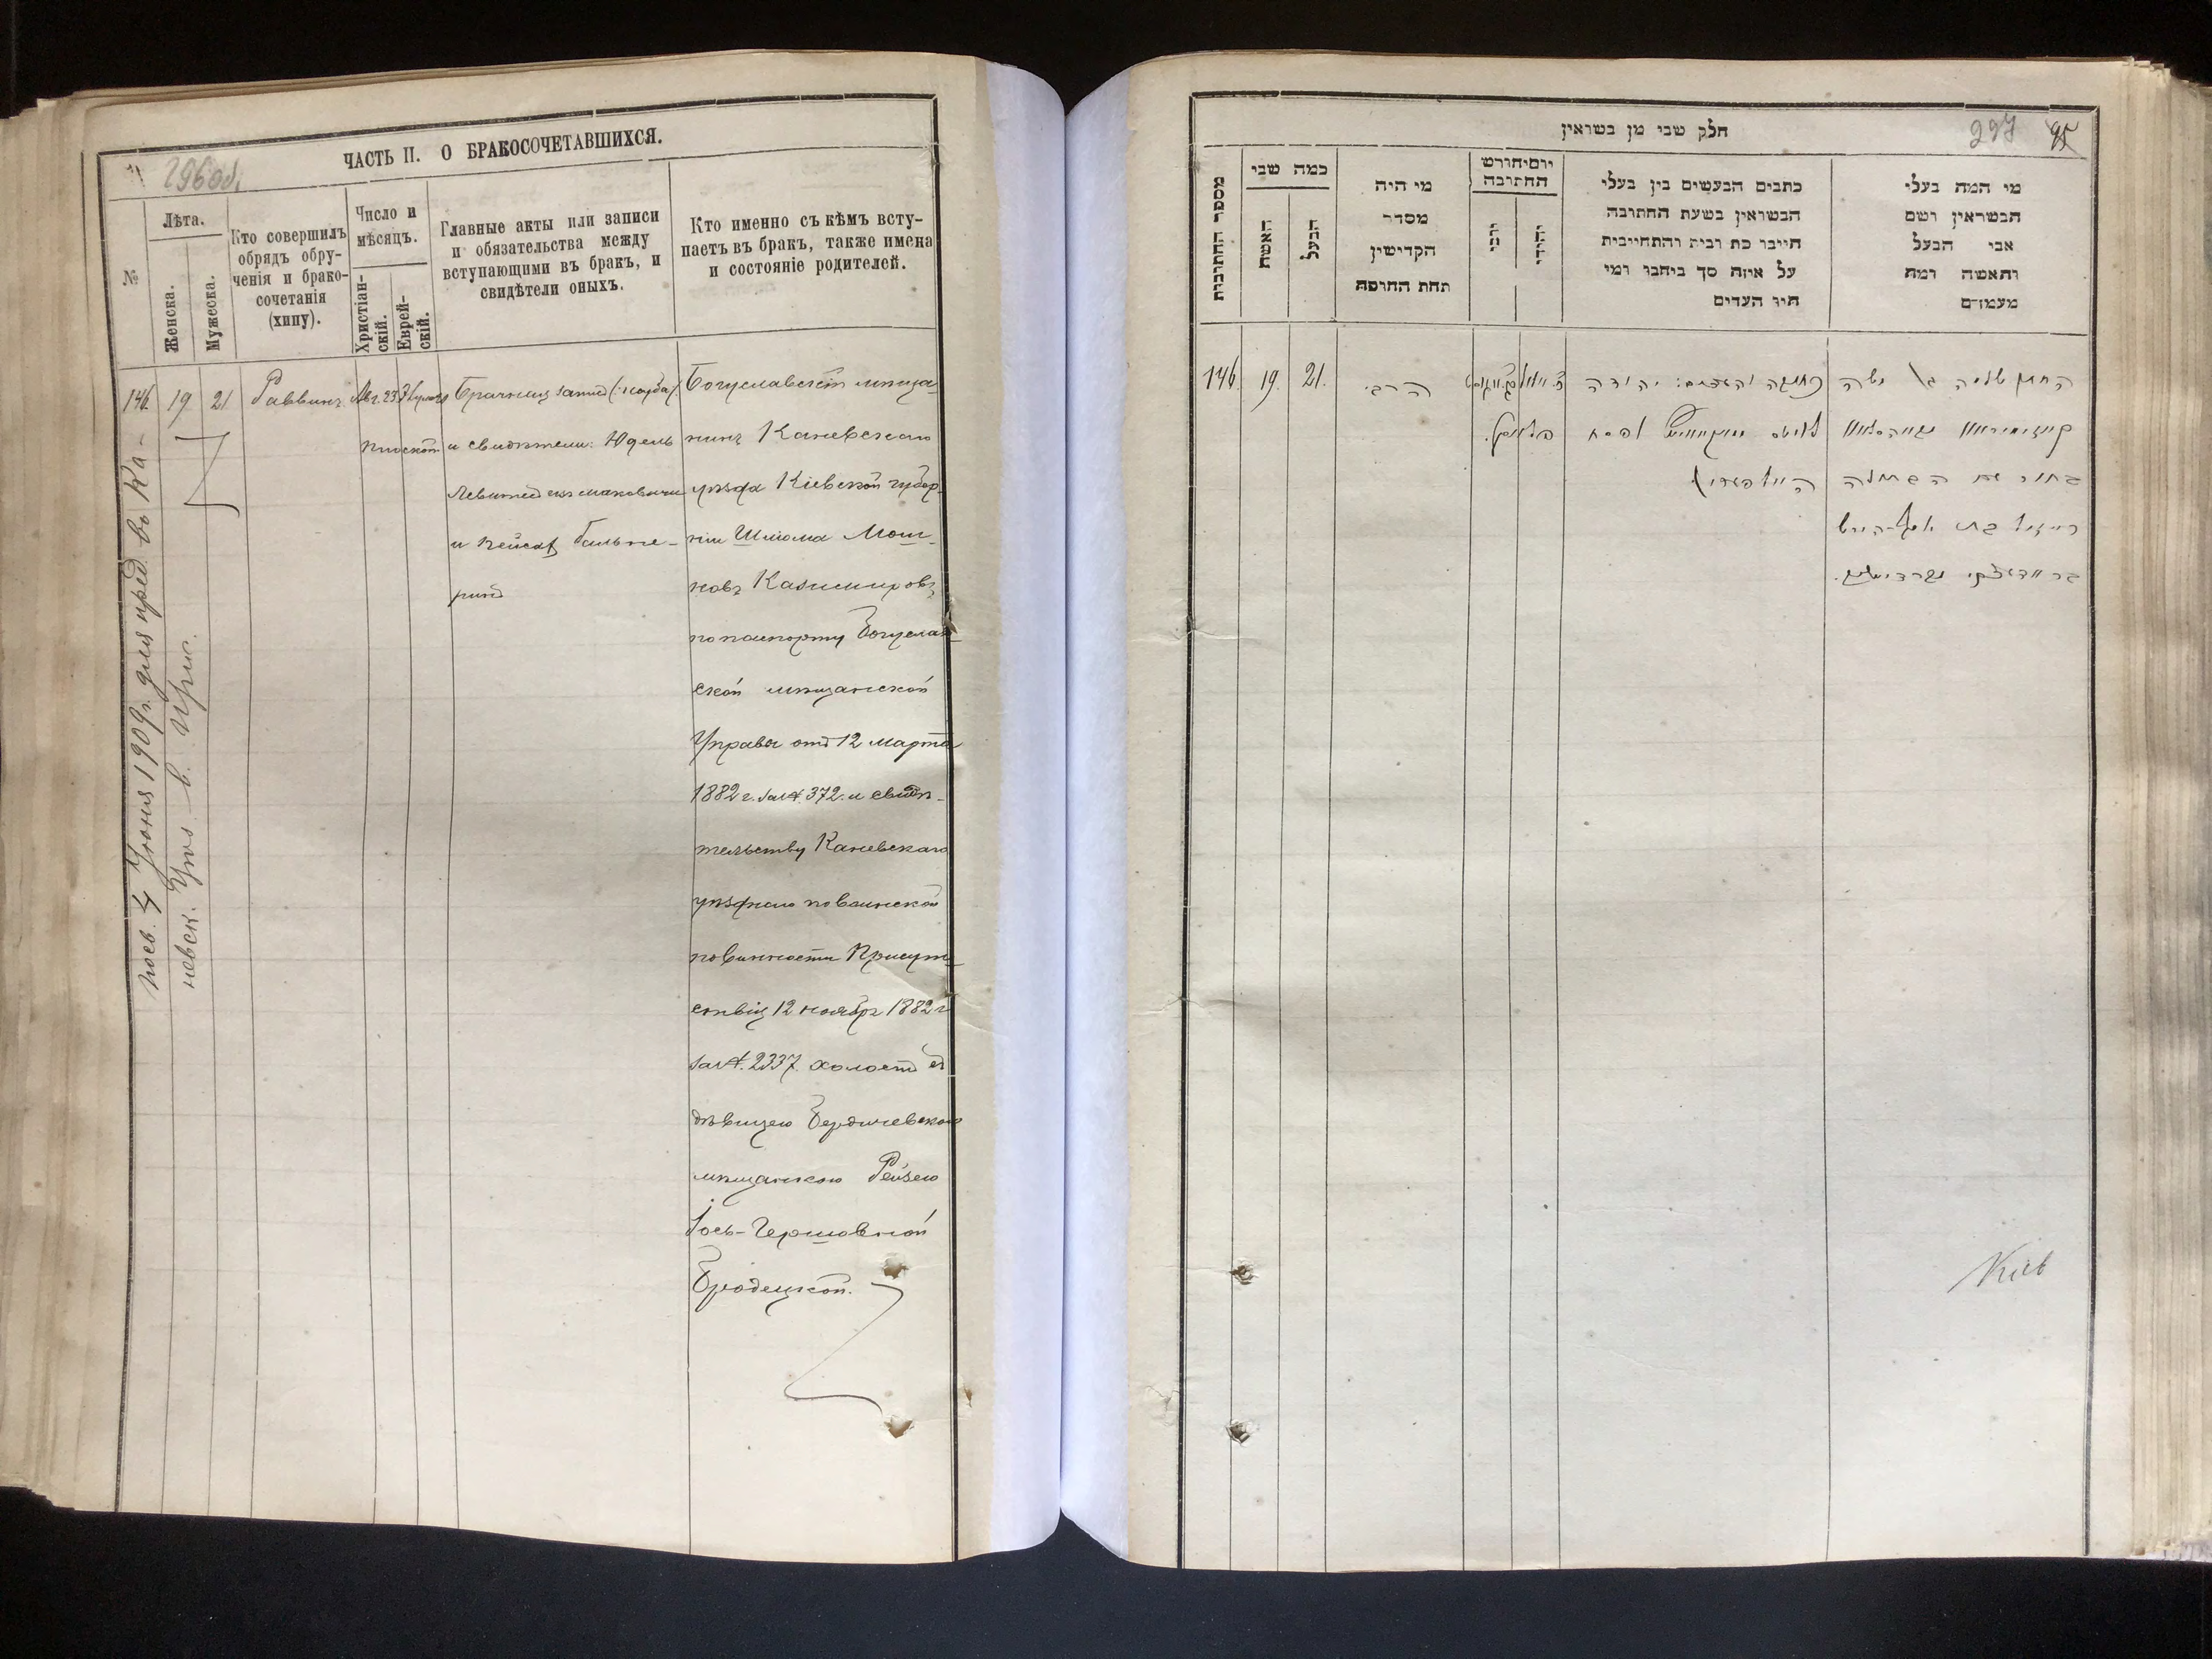 296 об.
ЧАСТЬ II. О БРАКОСОЧЕТАВШИХСЯ.
№
Лѣта.
Женска.
Мужеска.
Кто совершилъ
обрядъ обру-
ченія и брако-
сочетанія
(хипу).
Число и
мѣсяцъ.
Христіан-
скій.
Еврей-
скій.
Главные акты или записи
и обязательства между
вступающими въ бракъ, и
свидѣтели оныхъ.
Кто именно съ кѣмъ всту-
паетъ въ бракъ, также имена
и состояніе родителей.
146.
19
21
Раввинъ.
Авг. 23
Брачная запись
и свидѣтели: Юдель
и Пейсах Гальпе-
ринъ
Богуславскій мѣща-
нинъ Каневскаго
уѣзда Кіевской губер-
ніи Шліома Мош-
ковъ Казимировъ,
по паспорту Богуслав-
ской мѣщанской
Управы отъ 12 марта
1882 г. за № 372. и свидѣ-
тельству Каневскаго
уѣзднаго по воинской
повинности Присут-
ствія 12 ноября 1882 г
за №. 2337 холостъ съ
дѣвицею Бердичевскою
мѣщанкою Рейзею
Іось-Гершовной
Бродецкой.
4 Іюня 1909 г. для пред. въ Ка-
невск. Уѣз. в. прис.
297
95
חלק שני מן נשואין
מספר החתונות
כמה שני
האשה
הבעל
מי היה
מסדר
הקדישין
תחת החופה
יום וחודש
החתונה
כתבים הנעשים בין בעלי
הנשואין בשעת החתונה
היינו כת וביה והתחייבות
על איזה סך ביחבו ומי
היו העדים
מי המה בעלי
הנשואין ושם
אבי הבעל
והאשה ומה
מעמדם
146.
19.
21.
הרב.
כתובה והעדים: יהודה
הגלפערין
החתן שלמה ב\ משה
בחור עם הבתולה
רייזיל בת יוסף הירש
Кіев